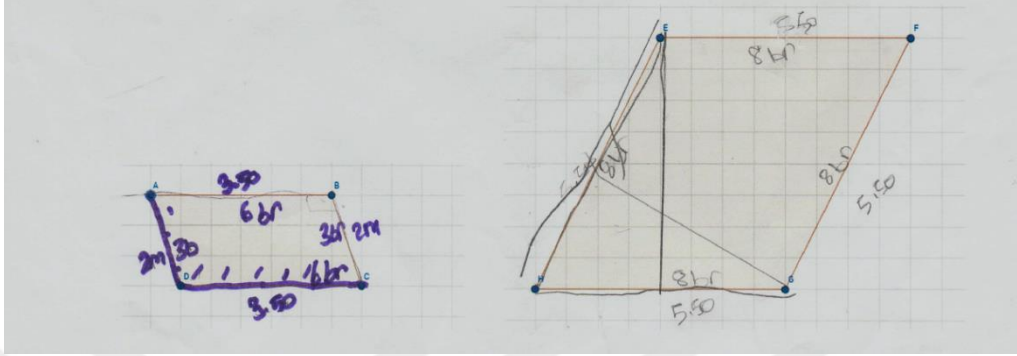 A
B
3.50
6 br
2m
3br
3br 2m
D
6 br
C
3.50
E
F
5.50
8 br
8 br
8 br
5.50
H
8 br
G
5.50